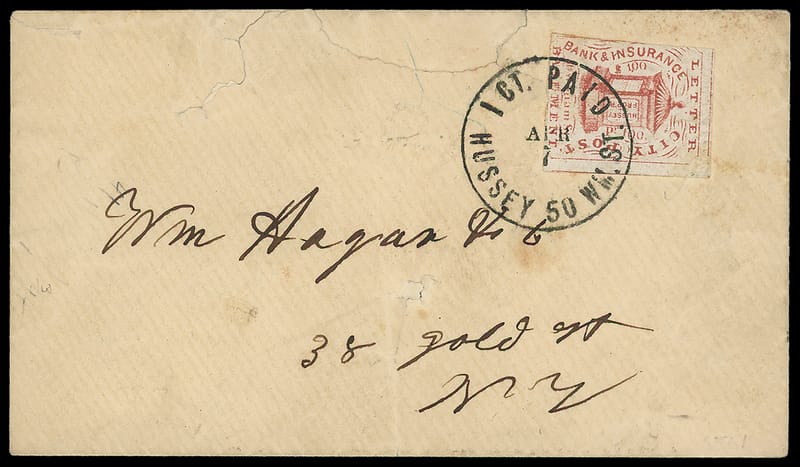 1 CT. PAID
HUSSEY 50 WM. ST.
APR
7
BANK & INSURANCE
CITY POST
LETTER
Wm Hagar & Co
38 Gold St
N Y